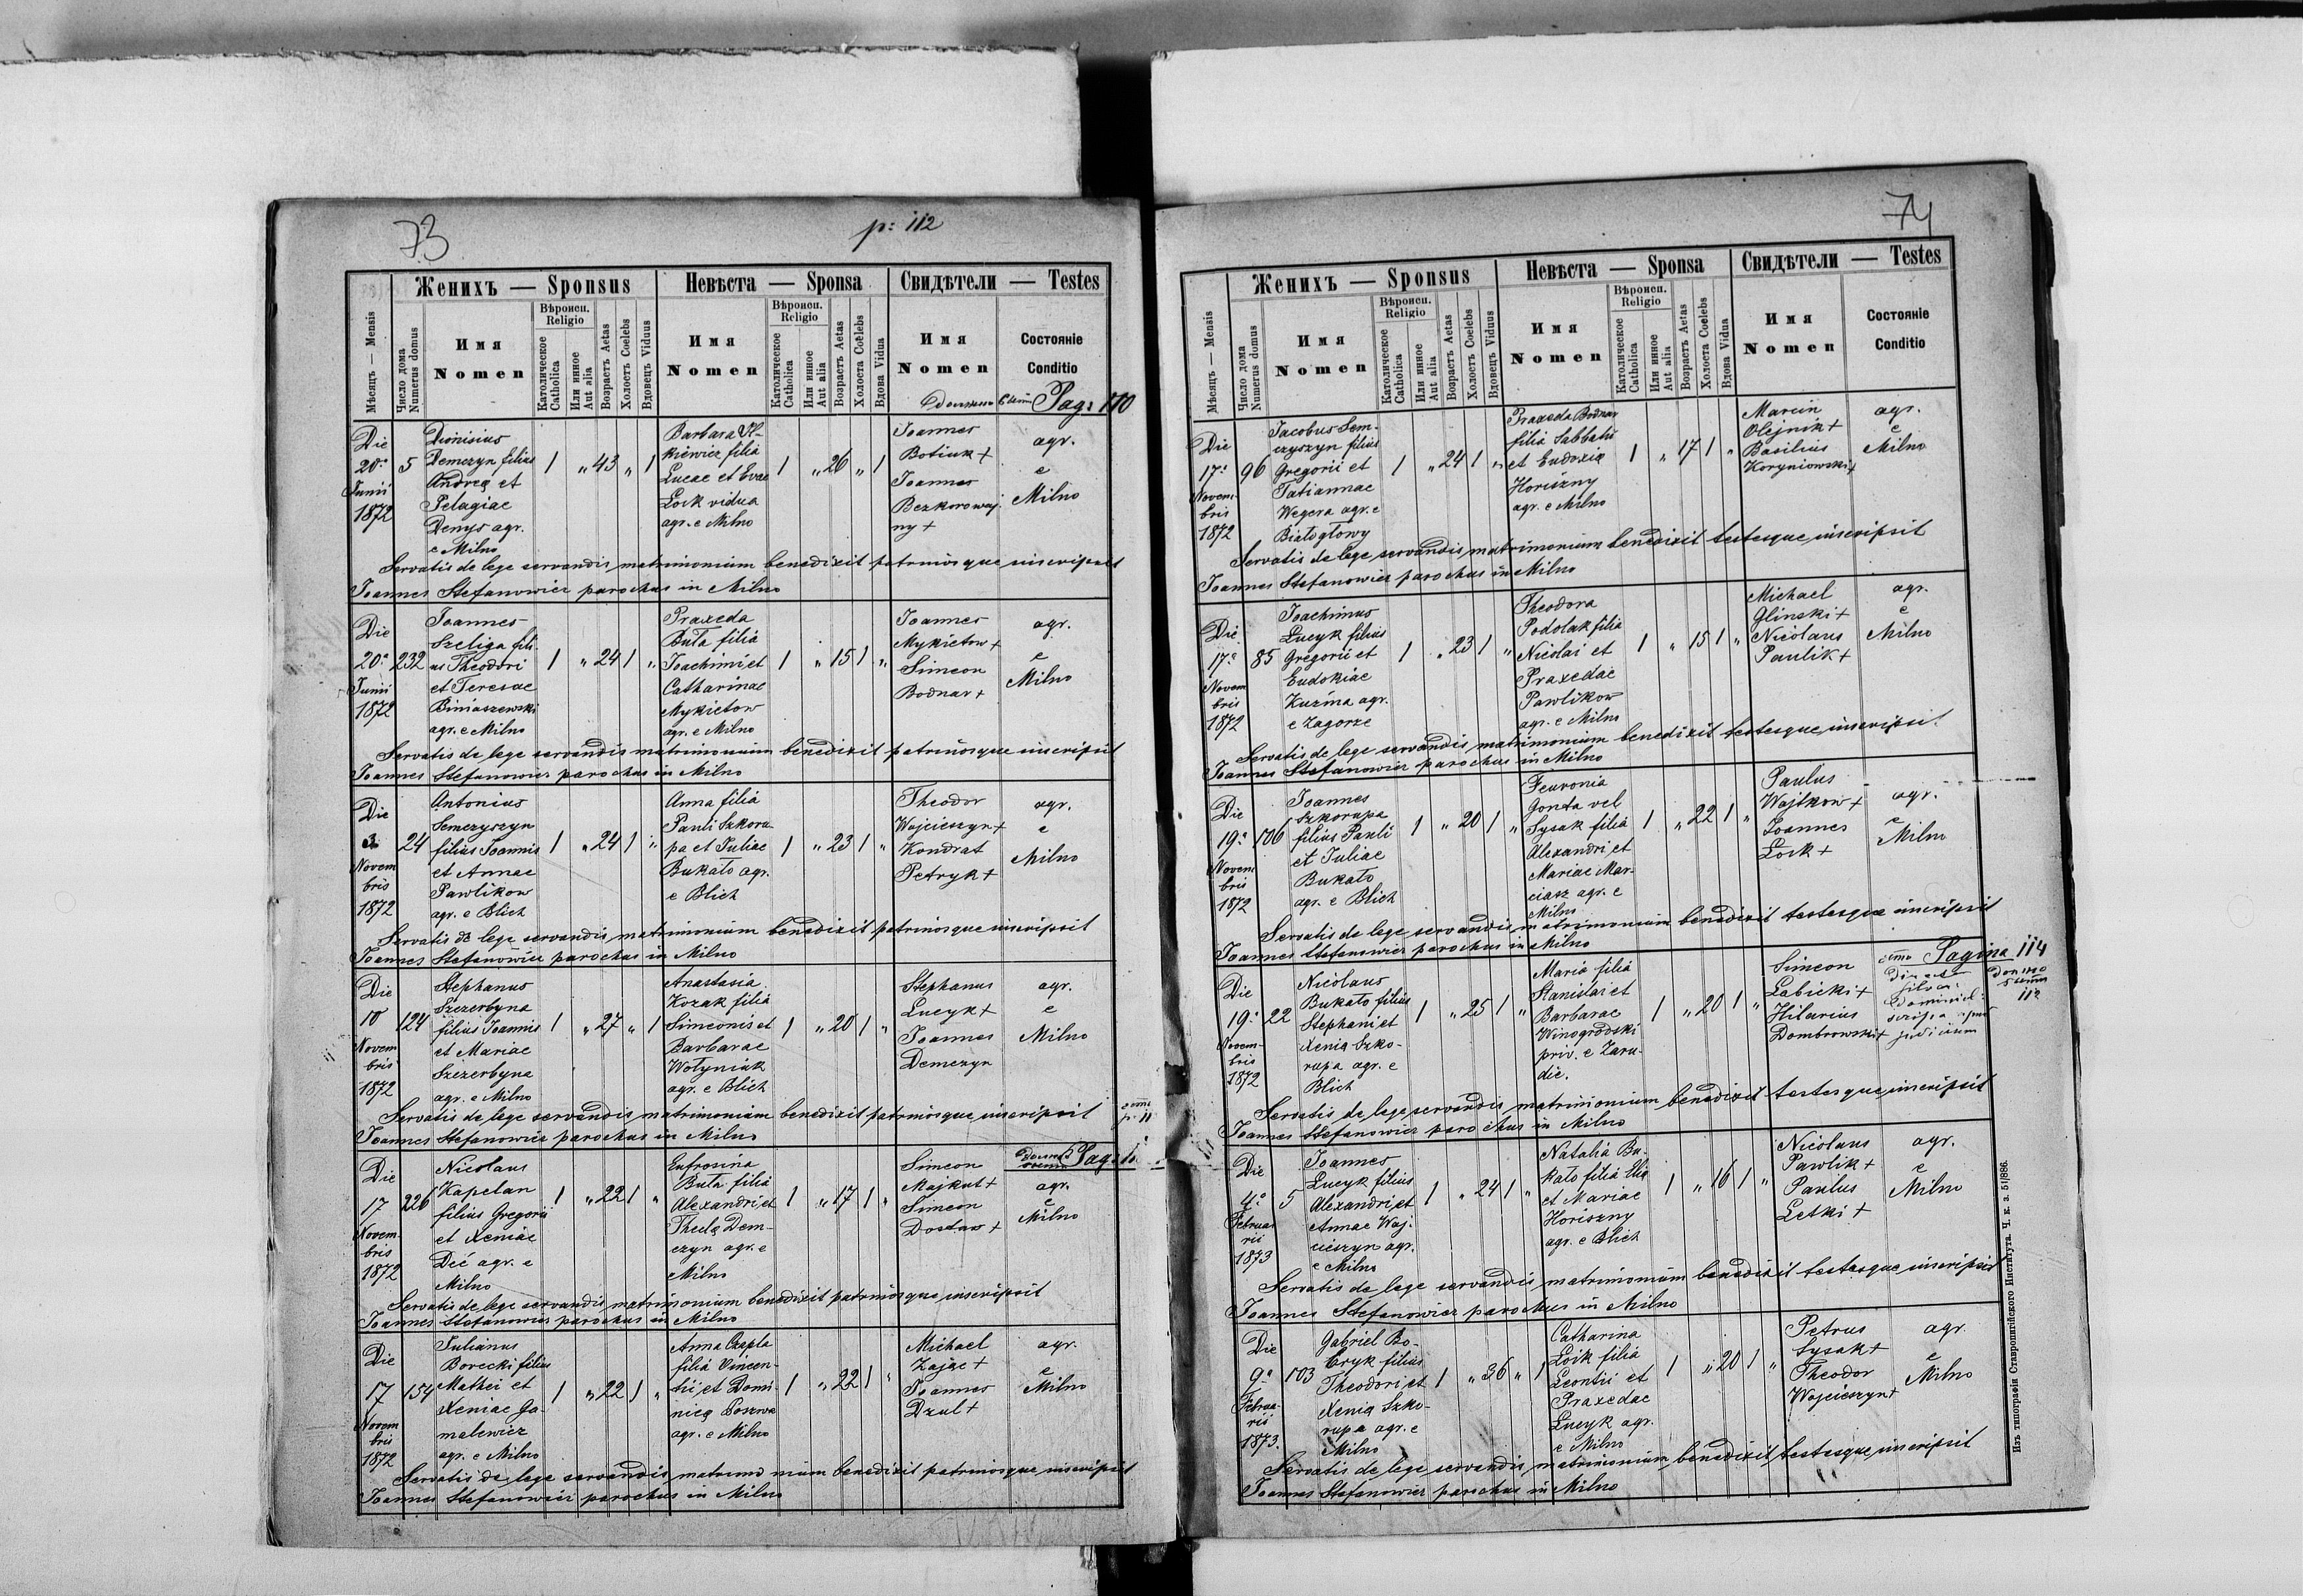 73
p: 112
Женихъ — Sponsus
Невѣста — Sponsa
Свидѣтели — Testes
Мѣсяцъ — Mensis
Число дома
Numerus domus
Имя
Nomen
Вѣроисп.
Religio
Католическое
Catholica
Или инное
Aut alia
Возрастъ Aetas
Холостъ Coelebs
Вдовецъ Viduus
Имя
Nomen
Вѣроисп.
Religio
Католическое
Catholica
Или инное
Aut alia
Возрастъ Aetas
Холоста Coelebs
Вдова Vidua
Имя
Nomen
Состояніе
Conditio
Pag: 110
Die
20a
Junii
1872
5
Dionisius
Demczyn filius
Andreą et
Pelagiae
Denys agr.
e Milno
1 „ 43 „ 1
Barbara
kiewicz filia
Lucae et Evae
Łoik vidua
agr. e Milno
1 „ 26 „ 1
Joannes
Botiuk +
Joannes
Bezkorowaj
ny +
agr.
e
Milno
Servatis de lege servandis matrimonium benedixit patrinosque inscripsit
Joannes Stefanowicz parochus in Milno
Die
20a
Junii
1872
232
Joannes
Szeliga fili-
us Theodori
et Teresae
Biniaszewski
agr. e Milno
1 „ 24 1 „
Praxeda
Buta filia
Joachimi et
Catharinae
Mykietow
agr. e Milno
1 „ 15 1 „
Joannes
Mykietow +
Simeon
Bodnar +
agr.
e
Milno
Servatis de lege servandis matrimonium benedixit patrinosque inscripsit
Joannes Stefanowicz parochus in Milno
Die
3
Novem
bris
1872
24
Antonius
Semczyszyn
filius Joannis
et Annae
Pawlikow
agr. e Blich
1 „ 24 1 „
Anna filia
Pauli Szkoru-
pa et Juliae
Bukato agr.
e Blich
1 „ 23 1 „
Theodor
Wojcieszyn +
Kondrat
Petryk +
agr.
e
Milno
Servatis de lege servandis matrimonium benedixit patrinosque inscripsit
Joannes Stefanowicz parochus in Milno
Die
10
Novem
bris
1872
124
Stephanus
Szczerbyna
filius Joannis
et Mariae
Szczerbyna
agr. e Milno
1 „ 27 „ 1
Anastasia
Kozak filia
Simeonis et
Barbarae
Wołyniak
agr. e Blich
1 „ 20 1 „
Stephanus
Lucyk +
Joannes
Demczyn
agr.
e
Milno
Servatis de lege servandis matrimonium benedixit patrinosque inscripsit
Joannes Stefanowicz parochus in Milno
Die
17
Novem-
bris
1872
226
Nicolaus
Kapelan
filius Gregorii
et Xeniae
Dić agr. e
Milno
1 „ 22 1 „
Eufrosina
Buta filia
Alexandri et
Theclą Dem-
czyn agr. e
Milno
1 „ 17 1 „
Simeon
Majkut +
Simeon
Dostaw +
agr.
e
Milno
Servatis de lege servandis matrimonium benedixit patrinosque inscripsit
Joannes Stefanowicz parochus in Milno
Die
17
Novem
bris
1872
154
Julianus
Borecki filius
Mathei et
Xeniae Ga-
malewicz
agr. e Milno
1 „ 22 1 „
Anna Czapla
filia Vincen-
tii et Domi-
nicą Poszwa
agr. e Milno
1 „ 22 1 „
Michael
Zajac +
Joannes
Dzul +
agr.
e
Milno
Servatis de lege servandis matrimonium benedixit patrinosque inscripsit
Joannes Stefanowicz parochus in Milno
74
Женихъ — Sponsus
Невѣста — Sponsa
Свидѣтели — Testes
Мѣсяцъ — Mensis
Число дома
Numerus domus
Имя
Nomen
Вѣроисп.
Religio
Католическое
Catholica
Или инное
Aut alia
Возрастъ Aetas
Холостъ Coelebs
Вдовецъ Viduus
Имя
Nomen
Вѣроисп.
Religio
Католическое
Catholica
Или инное
Aut alia
Возрастъ Aetas
Холоста Coelebs
Вдова Vidua
Имя
Nomen
Состояніе
Conditio
Die
17a
Novem-
bris
1872
96
Jacobus Sem-
czyszyn filius
Gregorii et
Tatiannae
Wegera agr. e
Białogłowy
1 „ 24 1 „
Praxeda Bodnar
filia Sabbatii
et Eudoxią
Horiszny
agr. e Milno
1 „ 17 1 „
Marcin
Olejnik +
Basilius
Koryniowski +
agr.
e
Milno
Servatis de lege servandis matrimonium benedixit testesque inscripsit
Joannes Stefanowicz parochus in Milno
Die
17a
Novem
bris
1872
85
Joachimus
Lucyk filius
Gregorii et
Eudokiae
Kuzma agr.
e Zagorze
1 „ 23 1 „
Theodora
Podolak filia
Nicolai et
Praxedae
Pawlikow
agr. e Milno
1 „ 15 1 „
Michael
Glinski +
Nicolaus
Paulik +
agr.
e
Milno
Servatis de lege servandis matrimonium benedixit testesque inscripsit.
Joannes Stefanowicz parochus in Milno
Die
19a
Novem
bris
1872
106
Joannes
Szkorupa
filius Pauli
et Juliae
Bukato
agr. e Blich
1 „ 20 1 „
Feuronia
Gonta vel
Sysak filia
Alexandri et
Mariae Mar-
ciasz agr. e
Milno
1 „ 22 1 „
Paulus
Wojtkow +
Joannes
Łoik +
agr.
e
Milno
Servatis de lege servandis matrimonium benedixit testesque inscripsit
Joannes Stefanowicz parochus in Milno
Die
19a
Novem-
bris
1872
22
Nicolaus
Bukato filius
Stephani et
Xenią Szko-
rupa agr. e
Blich
1 „ 25 1 „
Maria filia
Stanislai et
Barbarae
Winogrodski
priv. e Zaru-
die.
1 „ 20 1 „
Simeon
Labicki +
Hilarius
Dombrowski +
Pagina 114
judicium
Servatis de lege servandis matrimonium benedixit testesque inscripsit
Joannes Stefanowicz parochus in Milno
Die
4a
Februa
rii
1873
5
Joannes
Lucyk filius
Alexandri et
Annae Woj-
cieszyn agr.
e Milno
1 „ 24 1 „
Natalia Bu-
kato filia Elią
et Mariae
Horiszny
agr. e Blich
1 „ 16 1 „
Nicolaus
Pawlik +
Paulus
Letki +
agr.
e
Milno
Servatis de lege servandis matrimonium benedixit testesque inscripsit
Joannes Stefanowicz parochus in Milno
Die
9a
Februa-
rii
1873.
103
Gabriel Bo-
Theodori et
Xenią Szko-
rupa agr. e
Milno
1 „ 36 „ 1
Catharina
Łoik filia
Leontii et
Praxedae
Lucyk agr.
e Milno
1 „ 20 1 „
Petrus
Sysak +
Theodor
Wojcieszyn +
agr.
e
Milno
Servatis de lege servandis matrimonium benedixit testesque inscripsit
Joannes Stefanowicz parochus in Milno
Изъ типографіи Ставропигійского Института. Ч. к. з. 51/886.